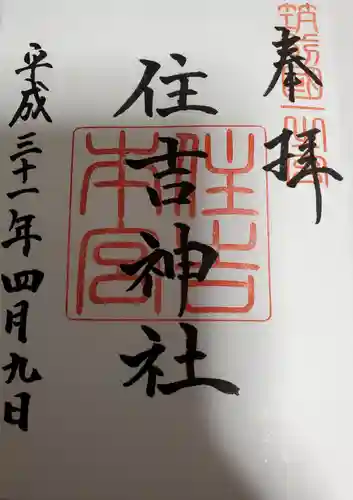 筑前國一之宮
奉拝
住吉神社
住吉本宮
平成三十一年四月九日